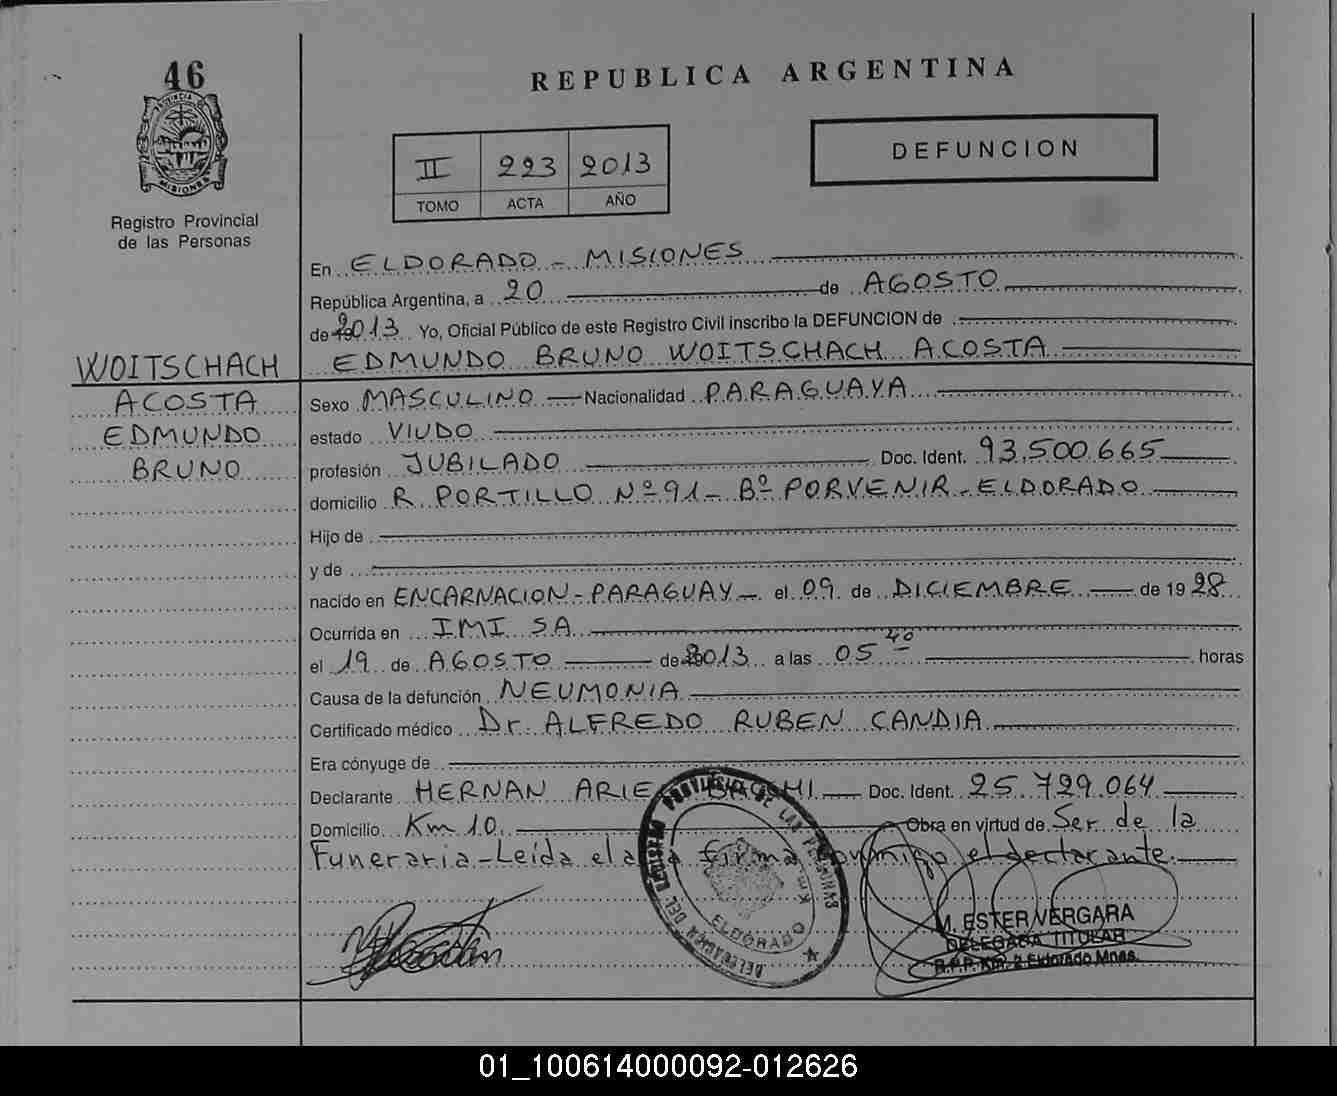 46
PROVINCIA DE
MISIONES
Registro Provincial
de las Personas
REPUBLICA ARGENTINA
II 223 2013
TOMO ACTA AÑO
DEFUNCION
En ELDORADO - MISIONES
República Argentina, a 20 de AGOSTO
de 2013 Yo, Oficial Público de este Registro Civil inscribo la DEFUNCION de
EDMUNDO BRUNO WOITSCHACH ACOSTA
WOITSCHACH
ACOSTA
EDMUNDO
BRUNO
Sexo MASCULINO Nacionalidad PARAGUAYA
estado VIUDO
profesión JUBILADO Doc. Ident. 93.500.665
domicilio R. PORTILLO Nº 91 - Bº PORVENIR - ELDORADO
Hijo de
y de
nacido en ENCARNACION - PARAGUAY - el 09 de DICIEMBRE de 1928
Ocurrida en IMI SA
el 19 de AGOSTO de 2013 a las 05 40 horas
Causa de la defunción NEUMONIA
Certificado médico Dr. ALFREDO RUBEN CANDIA
Era cónyuge de
Declarante HERNAN ARIE Doc. Ident. 25.729.064
Domicilio Km 10. Obra en virtud de Ser de la
Funeraria - Leída el acta firma conmigo el declarante.
DELEGACION DEL REGISTRO PROVINCIAL DE LAS PERSONAS
ELDORADO
M. ESTER VERGARA
DELEGADA TITULAR
R.P.P. Km. 2 Eldorado Mnes.
01_100614000092-012626